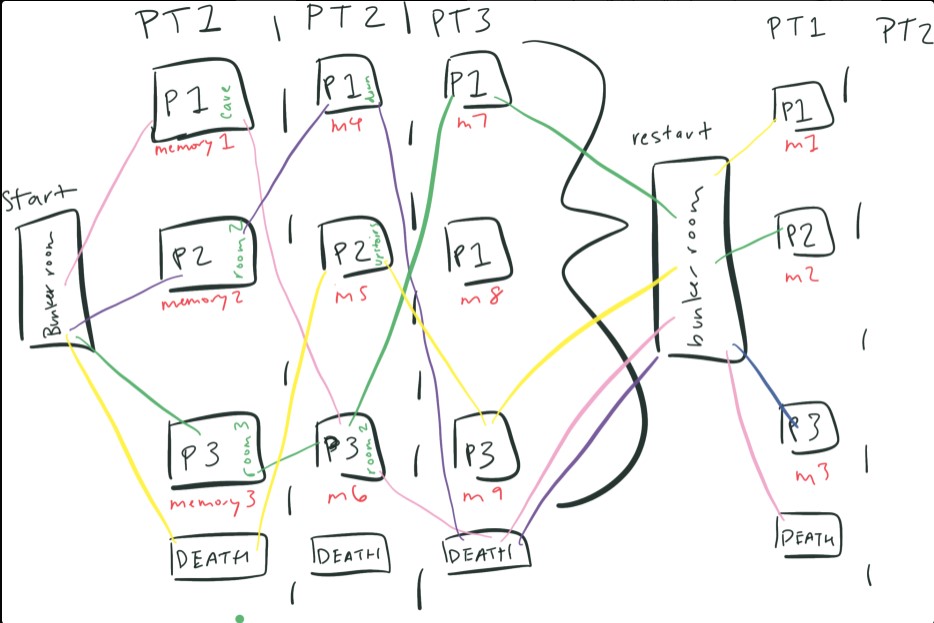 PT1 | PT2 | PT3
PT1 PT2
start
Bunker room
P1 cave
memory 1
P2 room 2
memory 2
P3 room 3
memory 3
DEATH
P1
m4
P2 upstairs
m5
P3 room 2
m6
DEATH
P1
m7
P1
m8
P3
m9
DEATH
restart
bunker room
P1
m1
P2
m2
P3
m3
DEATH